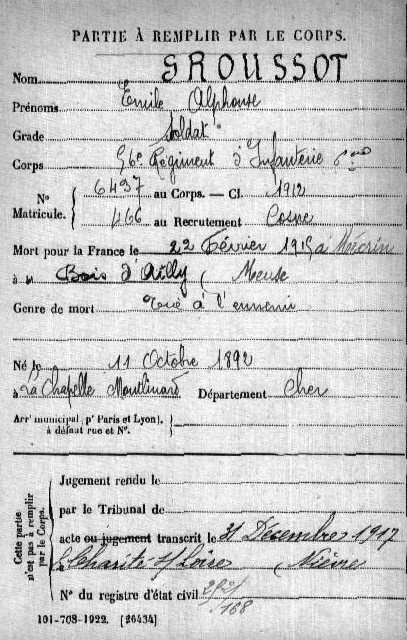 PARTIE À REMPLIR PAR LE CORPS.
Nom GROUSSOT
Prénoms Emile Alphonse
Grade Soldat
Corps 56e Régiment d'Infanterie
N° Matricule. { 6497 au Corps. — Cl. 1912
466 au Recrutement Cosne
Mort pour la France le 22 Février 1915 à Mécrin
à Bois d'Ailly (Meuse
Genre de mort Tué à l'ennemi
Né le 11 Octobre 1892
à La Chapelle Montlinard Département Cher
Arrt municipal (pr Paris et Lyon), à défaut rue et N°. }
Cette partie n'est pas à remplir par le Corps.
Jugement rendu le
par le Tribunal de
acte ou jugement transcrit le 31 Décembre 1917
La Charité s/ Loire Nièvre
N° du registre d'état civil 168
101-708-1922. [26434]